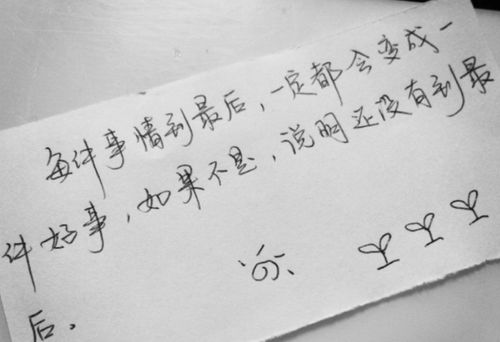 每件事情到最后,一定都会变成一
件好事,如果不是,说明还没有到最
后.